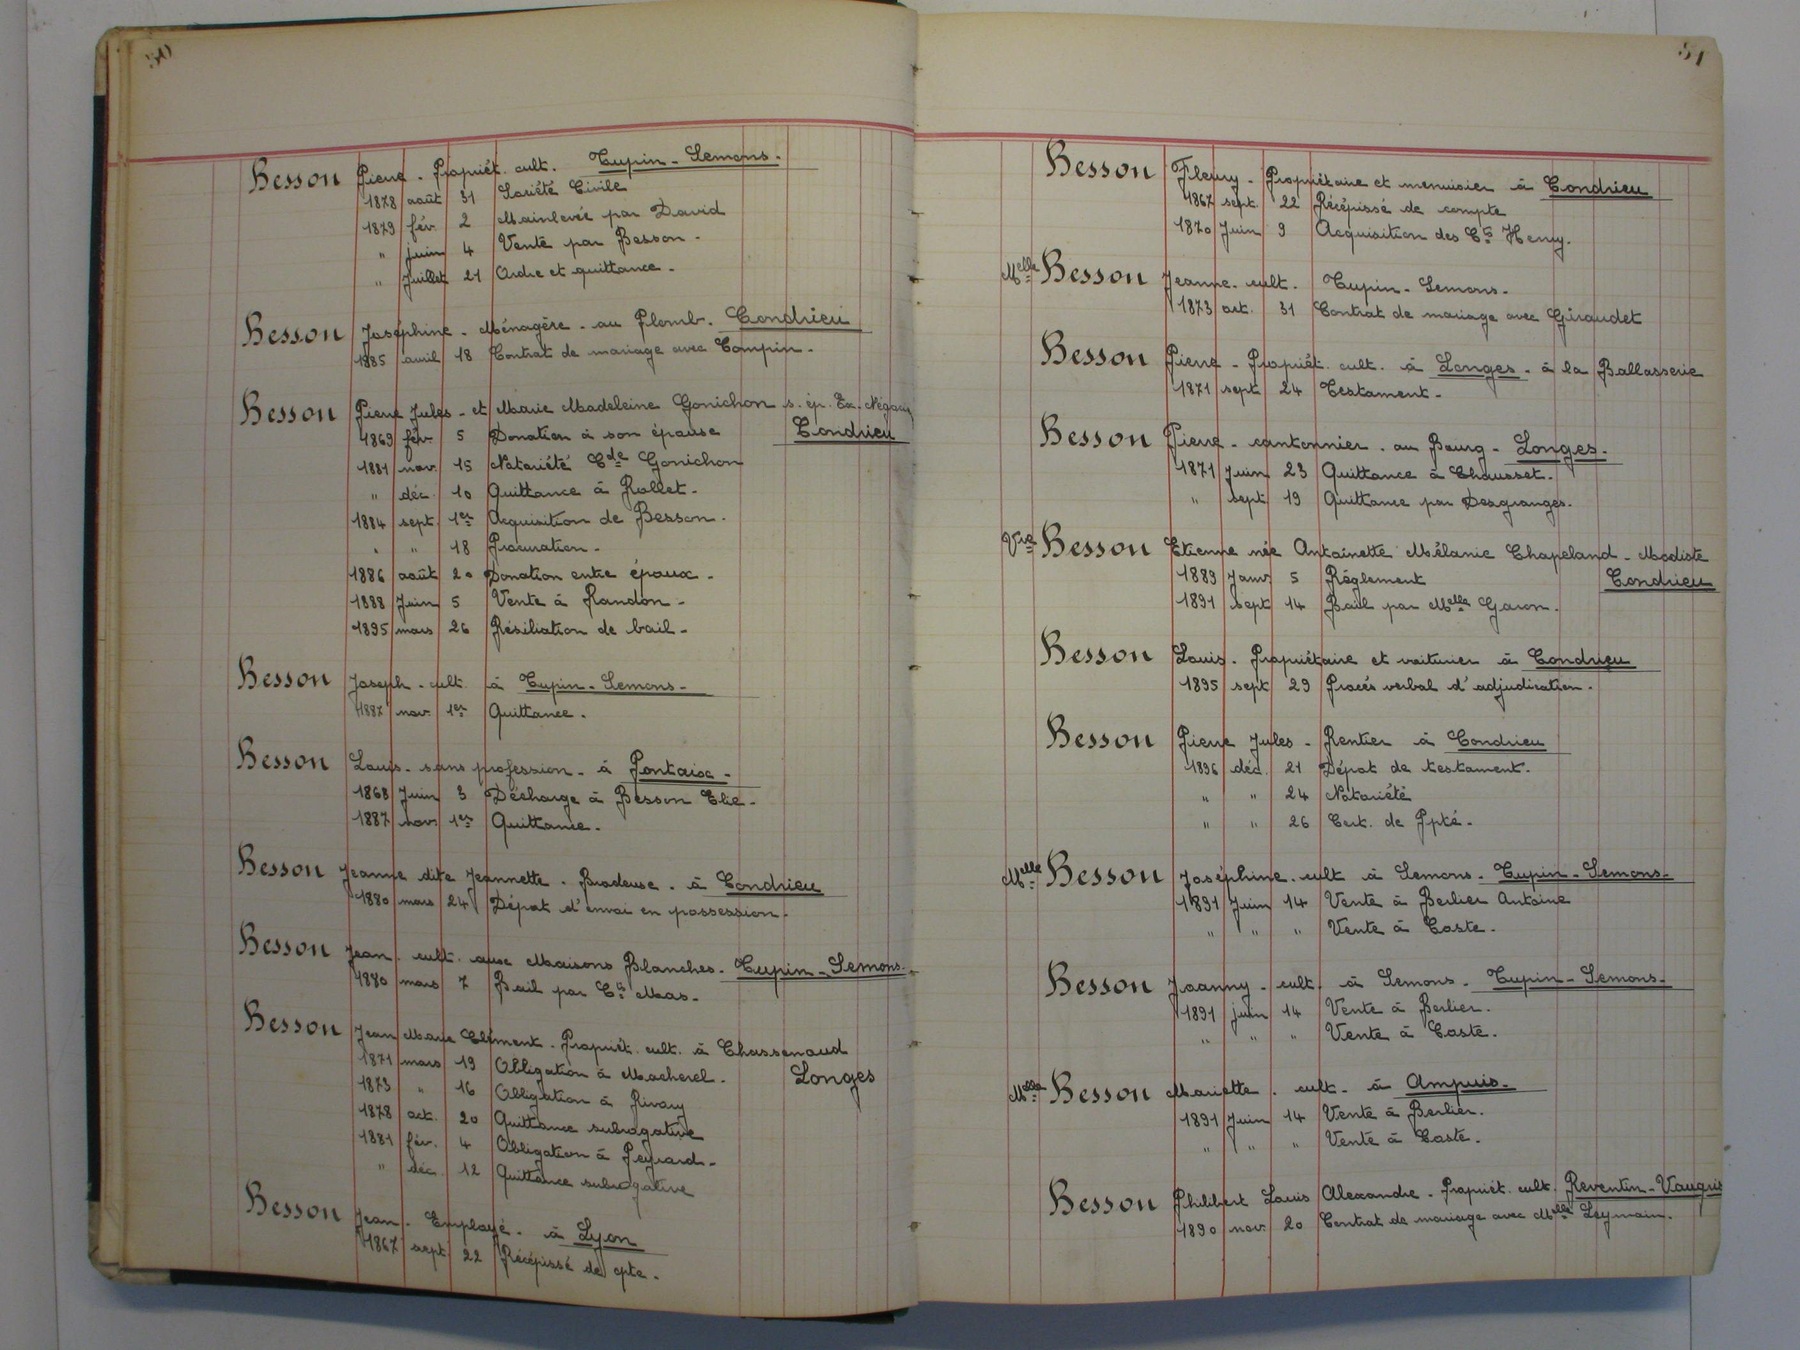 Besson Pierre - Propriét. cult. Tupin-Semons.
1878 août 31 Société Civile
1879 fév. 2 Mainlevée par David
" juin 4 Vente par Besson -
" Juillet 21 Ordre et quittance -
Besson Joséphine - Ménagère - au Plomb. Condrieu
1885 avril 18 Contrat de mariage avec Compin -
Besson Pierre Jules - et Marie Madeleine Gonichon s. ép. Ex.
1869 fév. 5 Donation à son épouse Condrieu
1881 nov. 15 Notariété Cde Gonichon
" déc. 10 Quittance à Rollet -
1884 sept. 1er Acquisition de Besson -
" " 18 Procuration -
1886 août 20 Donation entre époux -
1888 Juin 5 Vente à Randon -
1895 mars 26 Résiliation de bail -
Besson Joseph - cult. à Tupin-Semons -
1887 nov. 1er Quittance .
Besson Louis - sans profession - à Pontaise -
1868 Juin 3 Décharge à Besson Elie -
1887 nov. 1er Quittance .
Besson Jeanne dite Jeannette - Brodeuse - à Condrieu
1880 mars 24 Dépôt d'envoi en possession -
Besson Jean - cult. aux Maisons Blanches - Tupin-Semons.
1880 mars 7 Bail par Cts Mas -
Besson Jean Marie Clément - Propriét. cult. à Chassenoud
1871 mars 19 Obligation à Macherel - Longes
1873 " 16 Obligation à Rivory
1878 oct. 20 Quittance subrogative
1881 fév. 4 Obligation à Peyrard -
" déc. 12 Quittance subrogative
Besson Jean - Employé - à Lyon
1867 sept. 22 Récépissé de cpte .
51
Besson Fleury - Propriétaire et menuisier à Condrieu
1867 sept. 22 Récépissé de compte
1870 Juin 9 Acquisition des Cts Henry.
Melle Besson Jeanne - cult. Tupin-Semons -
1873 oct. 31 Contrat de mariage avec Giraudet
Besson Pierre - Propriét. cult. à Longes - à la Ballasserie
1871 sept 24 Testament -
Besson Pierre - cantonnier - au Bourg - Longes -
1871 Juin 23 Quittance à Chausset.
" sept 19 Quittance par Desgranges.
Vve Besson Etienne née Antoinette Mélanie Chapeland - Modiste
1889 Janv. 5 Règlement Condrieu
1891 sept 14 Bail par Melle Garon.
Besson Louis - Propriétaire et voiturier à Condrieu
1895 sept 29 Procès verbal d'adjudication -
Besson Pierre Jules - Rentier à Condrieu
1896 déc. 21 Dépot de testament -
" " 24 Notariété
" " 26 Cert. de Ppté -
Melle Besson Joséphine - cult à Semons - Tupin-Semons -
1891 Juin 14 Vente à Berlier Antoine
" " " Vente à Coste -
Besson Joanny - cult. à Semons - Tupin-Semons -
1891 juin 14 Vente à Berlier.
" " " Vente à Coste -
Melle Besson Mariette - cult - à Ampuis -
1891 Juin 14 Vente à Berlier.
" " " Vente à Coste -
Besson Philibert Louis Alexandre - Propriét. cult. Reventin-Vaugris
1890 nov. 20 Contrat de mariage avec Melle Leymain.